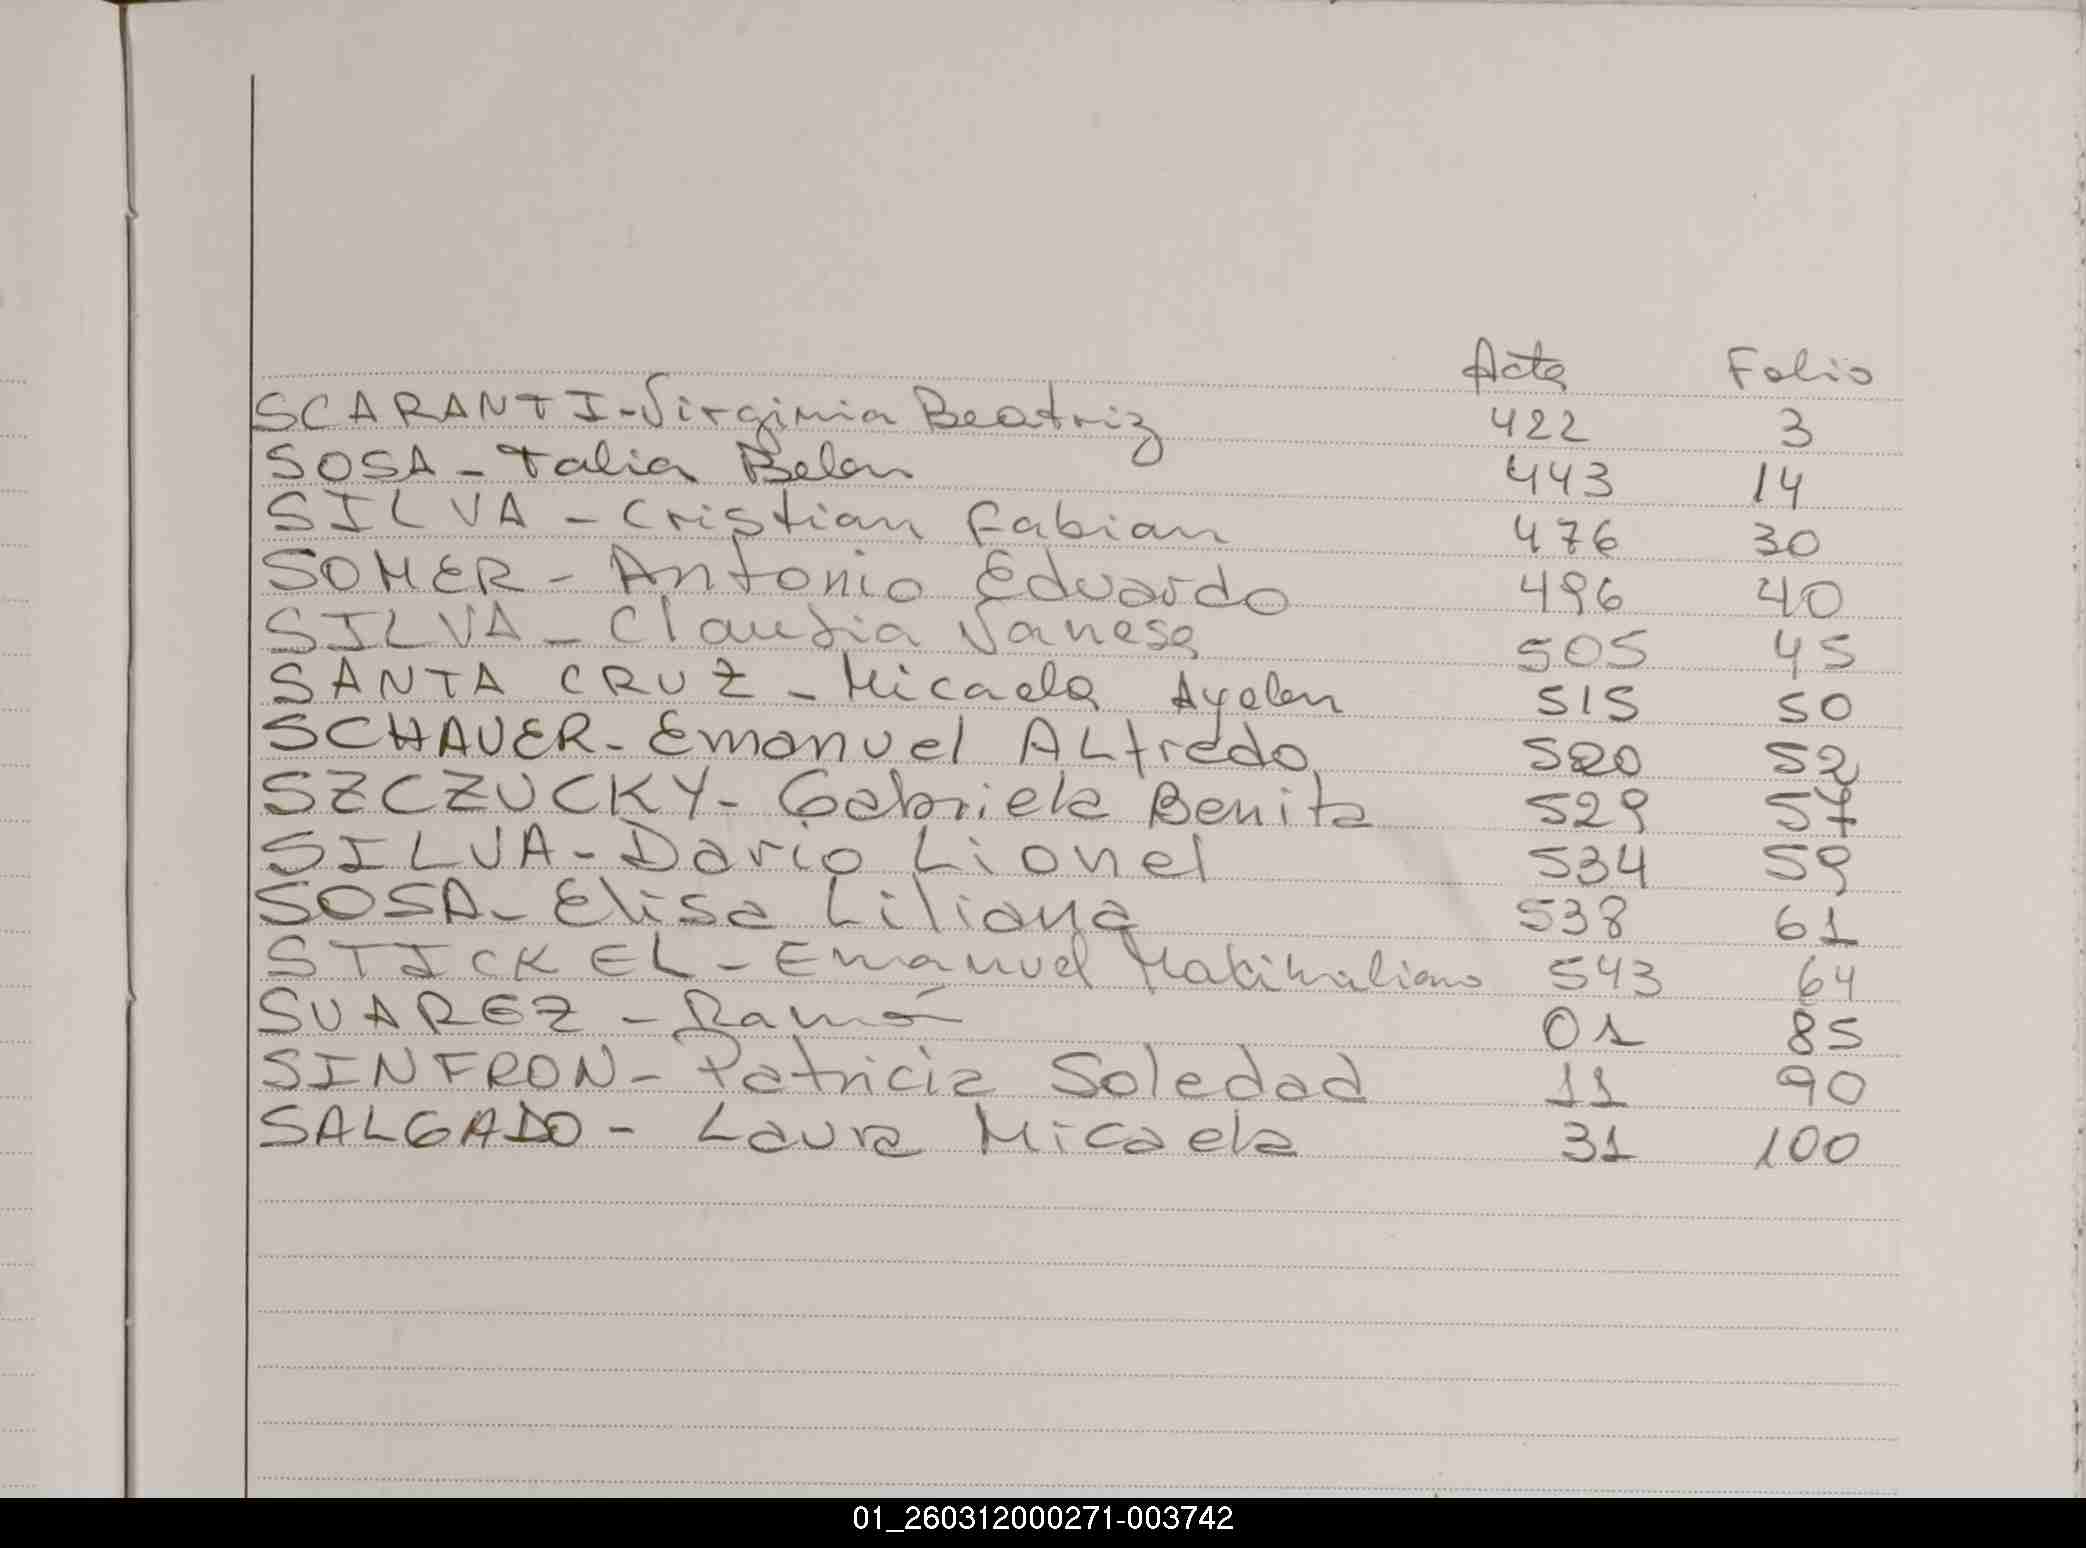 Acta Folio
SCARANTI - Virginia Beatriz 422 3
SOSA - Talia Belen 443 14
SILVA - Cristian Fabian 476 30
SOMER - Antonio Eduardo 496 40
SILVA - Claudia Vanesa 505 45
SANTA CRUZ - Micaela Ayelen 515 50
SCHAUER - Emanuel ALfredo 520 52
SZCZUCKY - Gabriela Benita 529 57
SILVA - Dario Lionel 534 59
SOSA - Elisa Liliana 538 61
STICKEL - Emanuel Maximiliano 543 64
SUAREZ - Ramón 01 85
SINFRON - Patricia Soledad 11 90
SALGADO - Laura Micaela 31 100
01_260312000271-003742